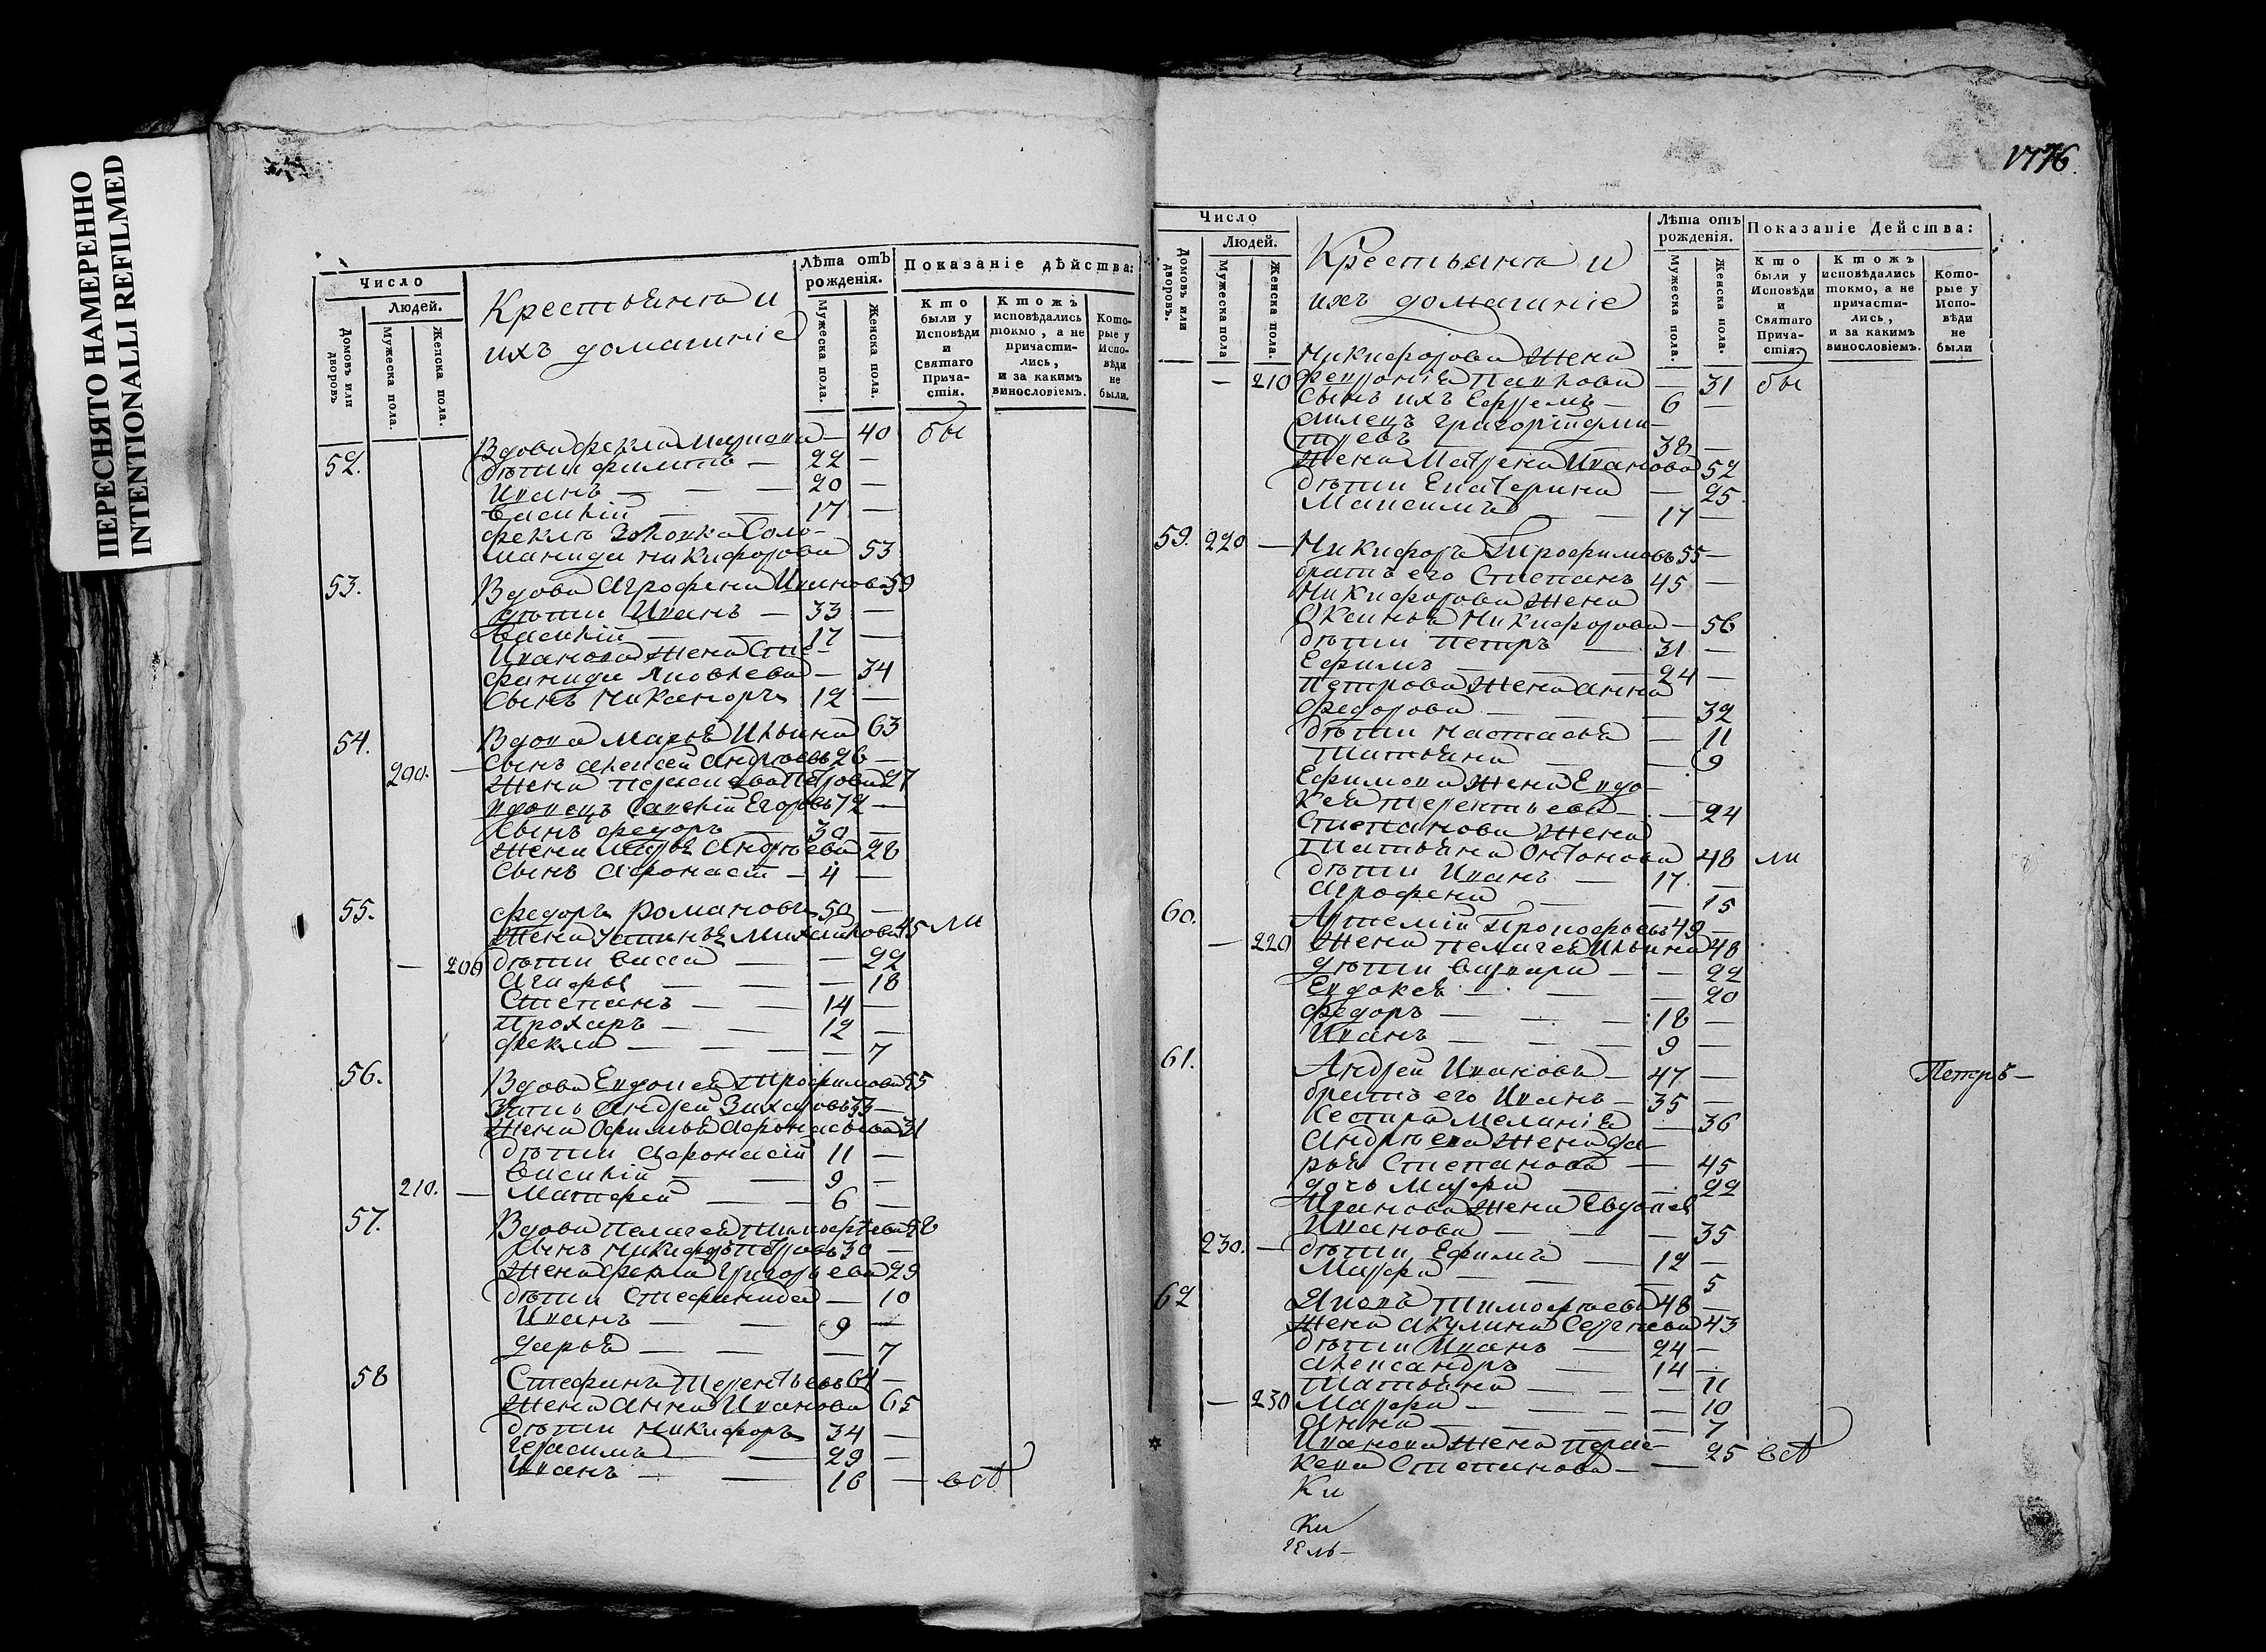 ПЕРЕСНЯТО НАМЕРЕННО
INTENTIONALLI REFILMED
Число
Людей.
Домовъ или дворовъ
Мужеска пола.
Женска пола.
Крестьяня и
ихъ домашніе
Лѣта отъ рожденія.
Мужеска пола.
Женска пола.
Показаніе дѣйства:
Кто были у Исповѣди и Святаго Причастія.
Ктожъ исповѣдались токмо, а не причастились, и за какимъ винословіемъ.
Которые у Исповѣди не были.
52. Вдова Фекла — 40 бы
дѣти Филипъ — 22 —
Иванъ — — — 20 —
Василій — — 17 —
Феклы золовка Соло-
манида Никифорова 53
53. Вдова Агрофена Иванова 59
дѣти Иванъ — 33 —
Василій — 17 —
Иванова жена Сте-
фанида Яковлева — 34
Сынъ Никаноръ 12 —
54. Вдова Марья Ильина 63
200. — Сынъ Алексей Андреевъ 26 —
Жена Петрова 27
вдовецъ Савелій Егоровъ 72 —
Сынъ Федоръ — 30 —
Жена Марья Андреева 28
Сынъ Афонасій — 4 —
55. Федоръ Романовъ 50 —
Жена Устинья Михайлова 45 ли
— 200 дѣти Васса — — 22
Агафья — — — 18
Степанъ — — 14 —
Прохоръ — — 12 —
Фекла — — — — 7
56. Вдова Евдокея Трофимова 55
Зять Андрей Захаровъ 33 —
Жена Офимья Афонасьева 31
дѣти Афонасій 11 —
Василій — — 9 —
210. — Матфей — — 6 —
57. Вдова Пелагея Тимофѣева 58
Сынъ Никифоръ Петровъ 30 —
Жена Фекла Григорьева 29
дѣти Стефанида — 10
Иванъ — — 9 —
Дарья — — — 7
58 Стефанъ Терентьевъ 64 —
Жена Анна Иванова 65
дѣти Никифоръ 34 —
Герасимъ — 29 —
Иванъ — — 18 — вст
1776.
Число
Людей.
Домовъ или дворовъ.
Мужеска пола
Женска пола.
Крестьяня и
ихъ домашніе
Лѣта отъ рожденія.
Мужеска пола.
Женска пола.
Показаніе Действа:
Кто были у Исповѣди и Святаго Причастія.
Ктожъ исповѣдались токмо, а не причастились, и за какимъ винословіемъ.
Которые у Исповѣди не были
Никифорова жена
— 210 Февронія Павлова — 31 бы
Сынъ ихъ Ефремъ — 6 —
Григорій Дми-
тревъ — — 38 —
Жена Матрена Иванова 52
дѣти Екатерина — 25
Максимъ — — 17 —
59. 220 — Никифоръ Трофимовъ 55 —
братъ его Степанъ 45 —
Никифорова жена
Оксинья Никифорова — 56
дѣти Петръ — 31 —
Ефимъ — — 24 —
Петрова жена Анна
Федорова — — — 32
дѣти Настасья — 11
Татьяна — — 9
Ефимова жена Евдо-
кея Терентьева — — 24
Степанова жена
Татьяна Онтонова 48 ли
дѣти Иванъ — 17 —
Агрофена — — 15
60. Артемій Прокофьевъ 49 —
— 220 Жена Пелагея Ильина 48
дѣти Варвара — — 22
Евдокея — — — 20
Федоръ — — — 18 —
Иванъ — — — 9 —
61. Андрей Ивановъ — 47 — Петръ —
братъ его Иванъ — 35 —
Сестра Меланія — 36
Андреева жена Да-
рья Степанова — 45
дочь Марфа — — 22
Иванова жена Евдокея
Иванова — — — 35
230. — дѣти Ефимъ — 12 —
Марфа — — — 5
62 Яковъ Тимофѣевъ 48 —
Жена Акулина Сергѣева 43
дѣти Иванъ — 24 —
Александръ — 14 —
Татьяна — — — 11
— 230 Марфа — — — 10
Анна — — — — 7
Иванова жена Парас-
кева Степанова — — 25 вст
Ки
Ки